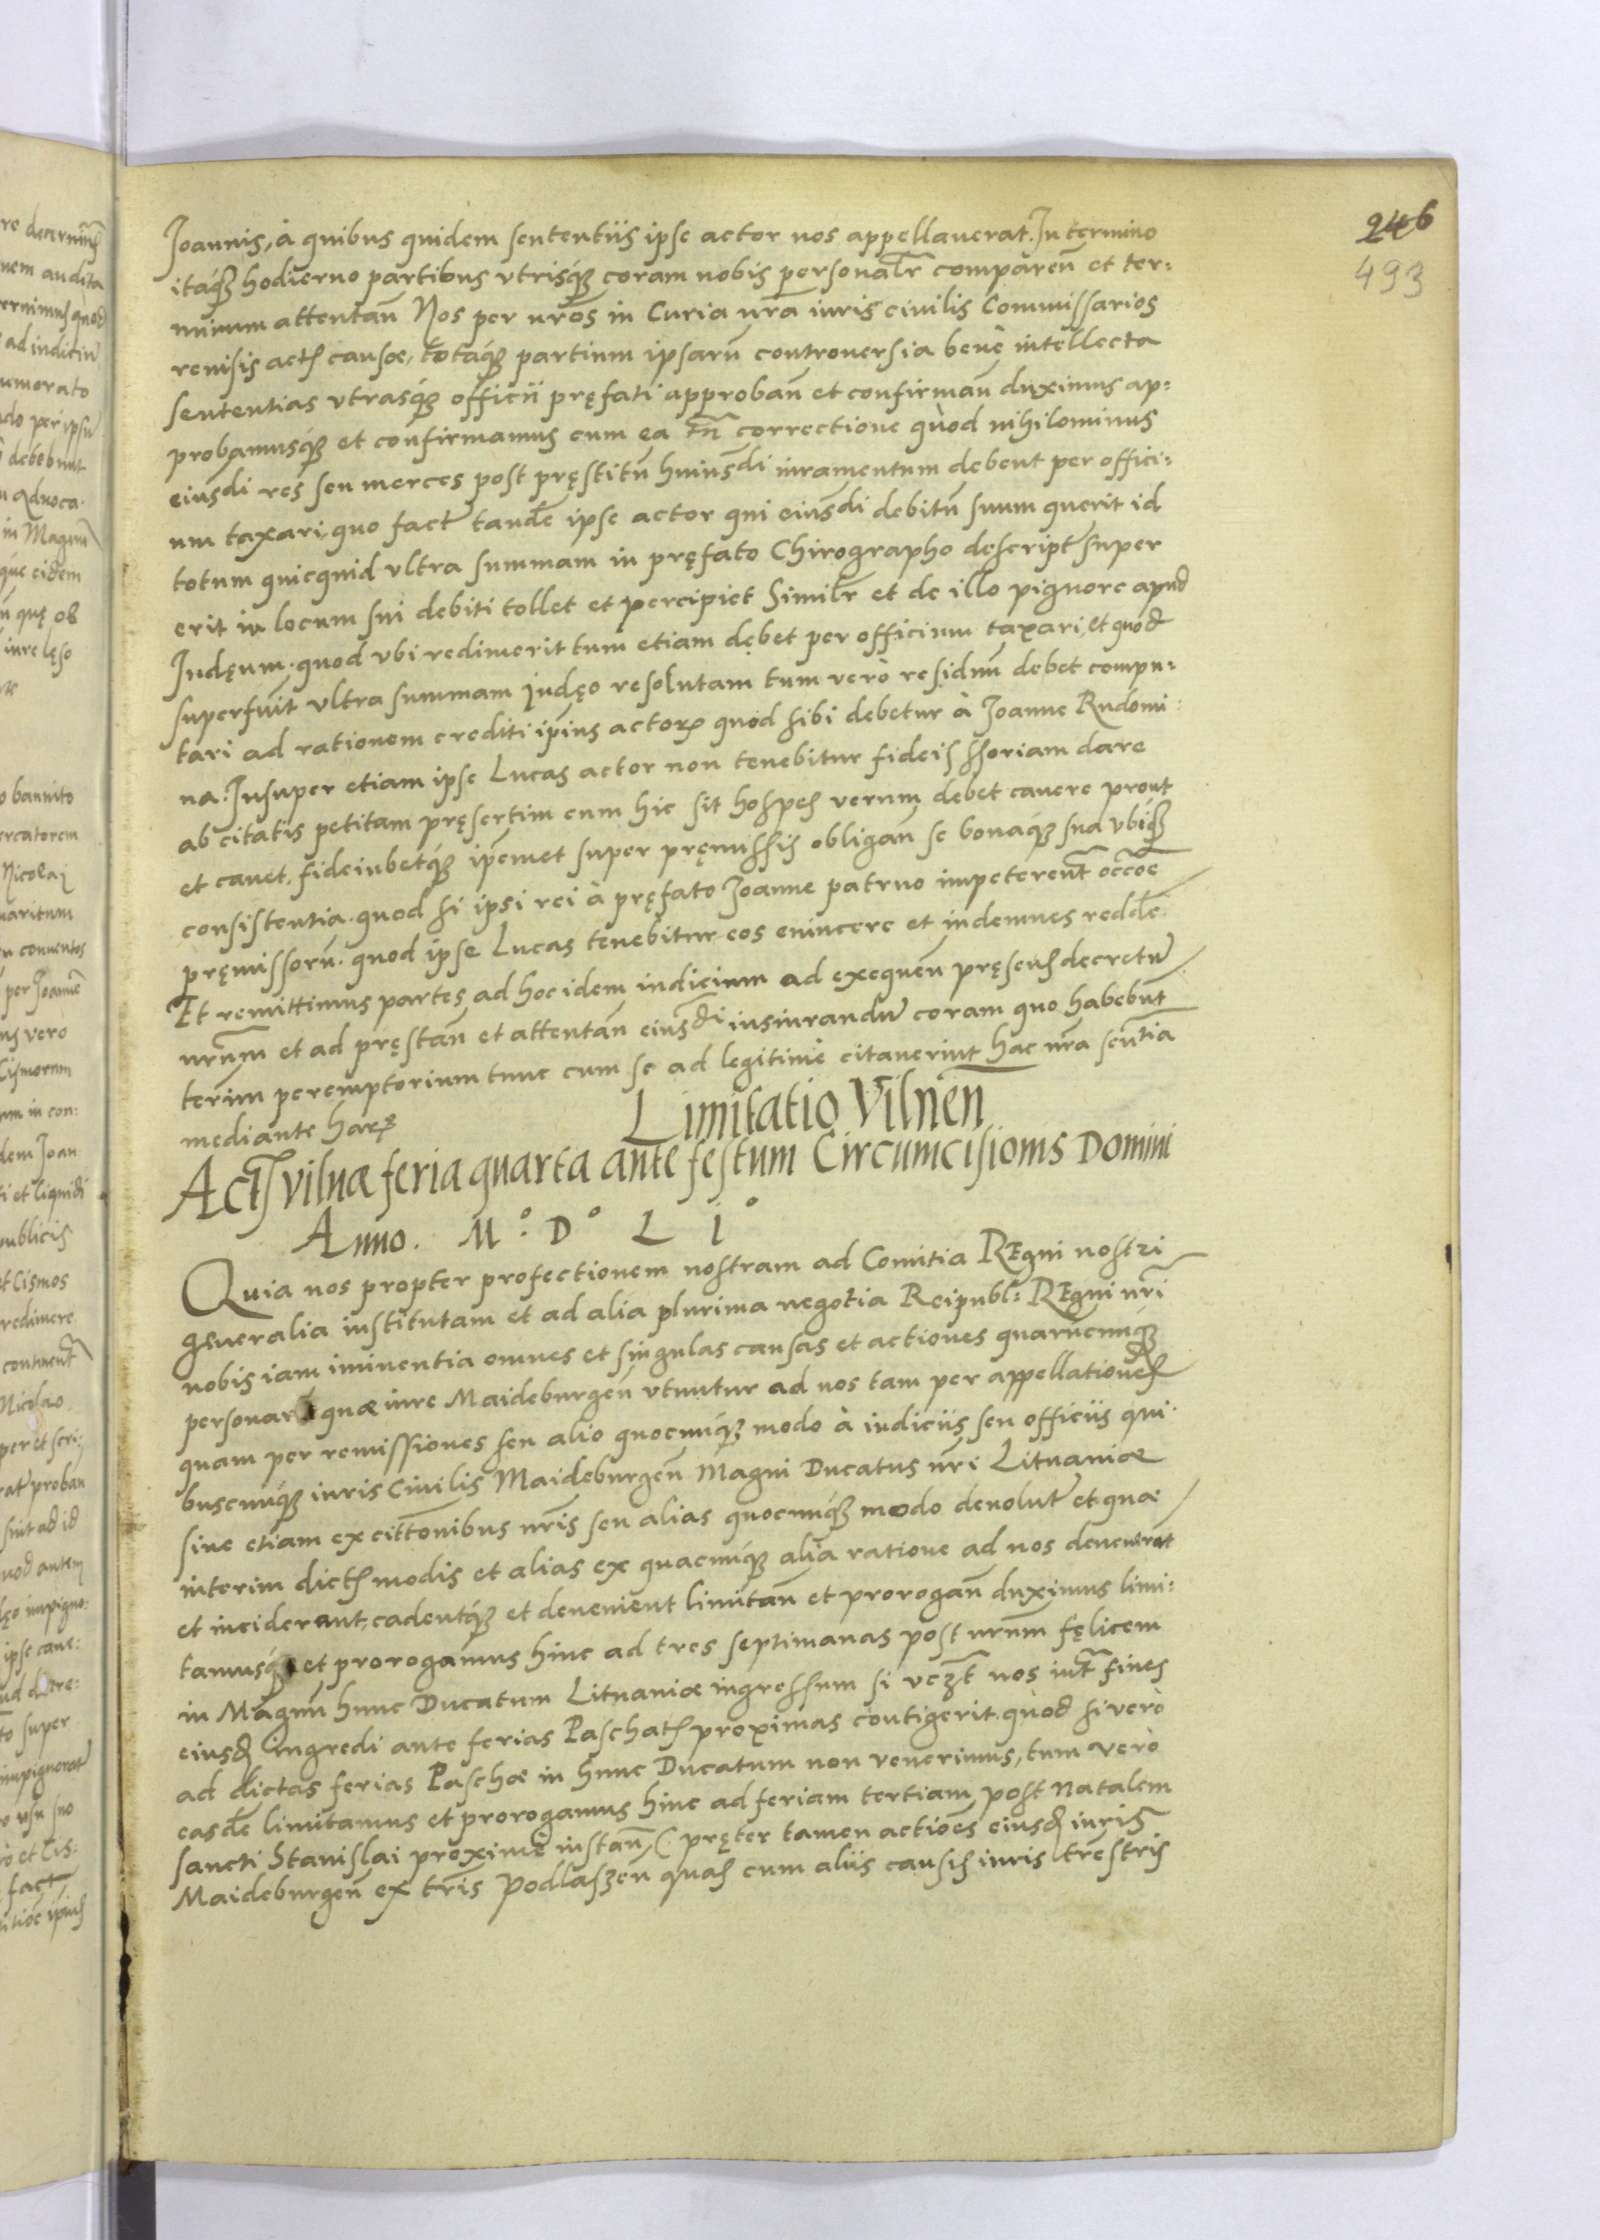 246
493
Joannis, à quibus quidem sententiis ipse actor nos appellauerat. In termino
itáqꝫ hodierno partibus vtrisqꝫ coram nobis personalr̃ comparen̄ et ter:
minum attentan̄ Nos per nr̃os in Curia nr̃a iuris ciuilis Commissarios
reuisis actis causæ, totáqꝫ partium ipsarū controuersia benè intellecta
sententias vtrasqꝫ officii pręfati approban̄ et confirman̄ duximus ap:
probamusqꝫ et confirmamus cum ea tn̄ correctione quòd nihilominus
eiusdi res seu merces post pręstitū huiusdi iuramentum debent per offici:
um taxari, quo fact̃ tandē ipse actor qui eiusdi debitū suum querit id
totum quicquid vltra summam in pręfato Chirographo descript̃ super
erit in locum sui debiti tollet et percipiet Similr̃ et de illo pignore apud
Iudęum. quod vbi redimerit tum etiam debet per officium taxari, et quod
superfuit vltra summam Iudęo resolutam tum verò residuū debet compu:
tari ad rationem crediti ip̄ius actorꝫ quod sibi debetur à Joanne Rudomi:
na. Insuper etiam ipse Lucas actor non tenebitur fideissoriam dare
ab citatis petitam pręsertim cum hic sit hospes verum debet cauere prout
et cauet, fideiubetqꝫ ip̄emet super pręmissis obligan̄ se bonaqꝫ sua vbiqꝫ
consistentia. quod si ipsi rei à pręfato Joanne patruo impeterent̃ occōe
pręmissorū. quod ipse Lucas tenebitur eos euincere et indemnes reddē.
Et remittimus partes ad hoc idem iudicium ad exequen̄ pręsens decretū
nr̃um et ad pręstan̄ et attentan̄ eiusdi iusiurandū coram quo habebunt
terīm peremptorium tunc cum se ad legitimè citauerint hac nr̃a sent̃ia
mediante harꝫ
Limitatio Vilnen̄
Act̃ Vilnæ feria quarta ante festum Circumcisionis Domini
Anno. M°: D° L I°
Quia nos propter profectionem nostram ad Comitia REgni nostri
generalia institutam et ad alia plurima negotia Reipubl: REgni nr̃i
nobis iam iminentia omnes et singulas causas et actiones quarūcunqꝫ
personar quæ iure Maideburgen̄ vtuntur ad nos tam per appellationes
quam per remissiones seu alio quocunqꝫ modo à iudiciis seu officiis qui:
buscunqꝫ iuris Ciuilis Maideburgen̄ Magni Ducatus nr̃i Lituaniæ
siue etiam ex citt̃onibus nr̃is seu alias quocunqꝫ modo deuolut̃ et quæ
interim dictis modis et alias ex quacunqꝫ alia ratione ad nos deuenerunt
et inciderunt, cadentqꝫ et deuenient limitan̄ et prorogan̄ duximus limi:
tamusqꝫ et prorogamus hinc ad tres septimanas post nr̃um fęlicem
in Magnū hunc Ducatum Lituaniæ ingressum si vcz̃t nos int̃ fines
eiusd ingredi ante ferias Paschatis proximas contigerit. quòd si verò
ad dictas ferias Paschæ in hunc Ducatum non venerimus, tum verò
easdē limitamus et prorogamus hinc ad feriam tertiam post Natalem
sancti Stanislai proximè instan̄, (: pręter tamen actiōes eiusd iuris
Maideburgen̄ ex tr̃is Podlaszen̄ quas cum aliis causis iuris tr̃estris